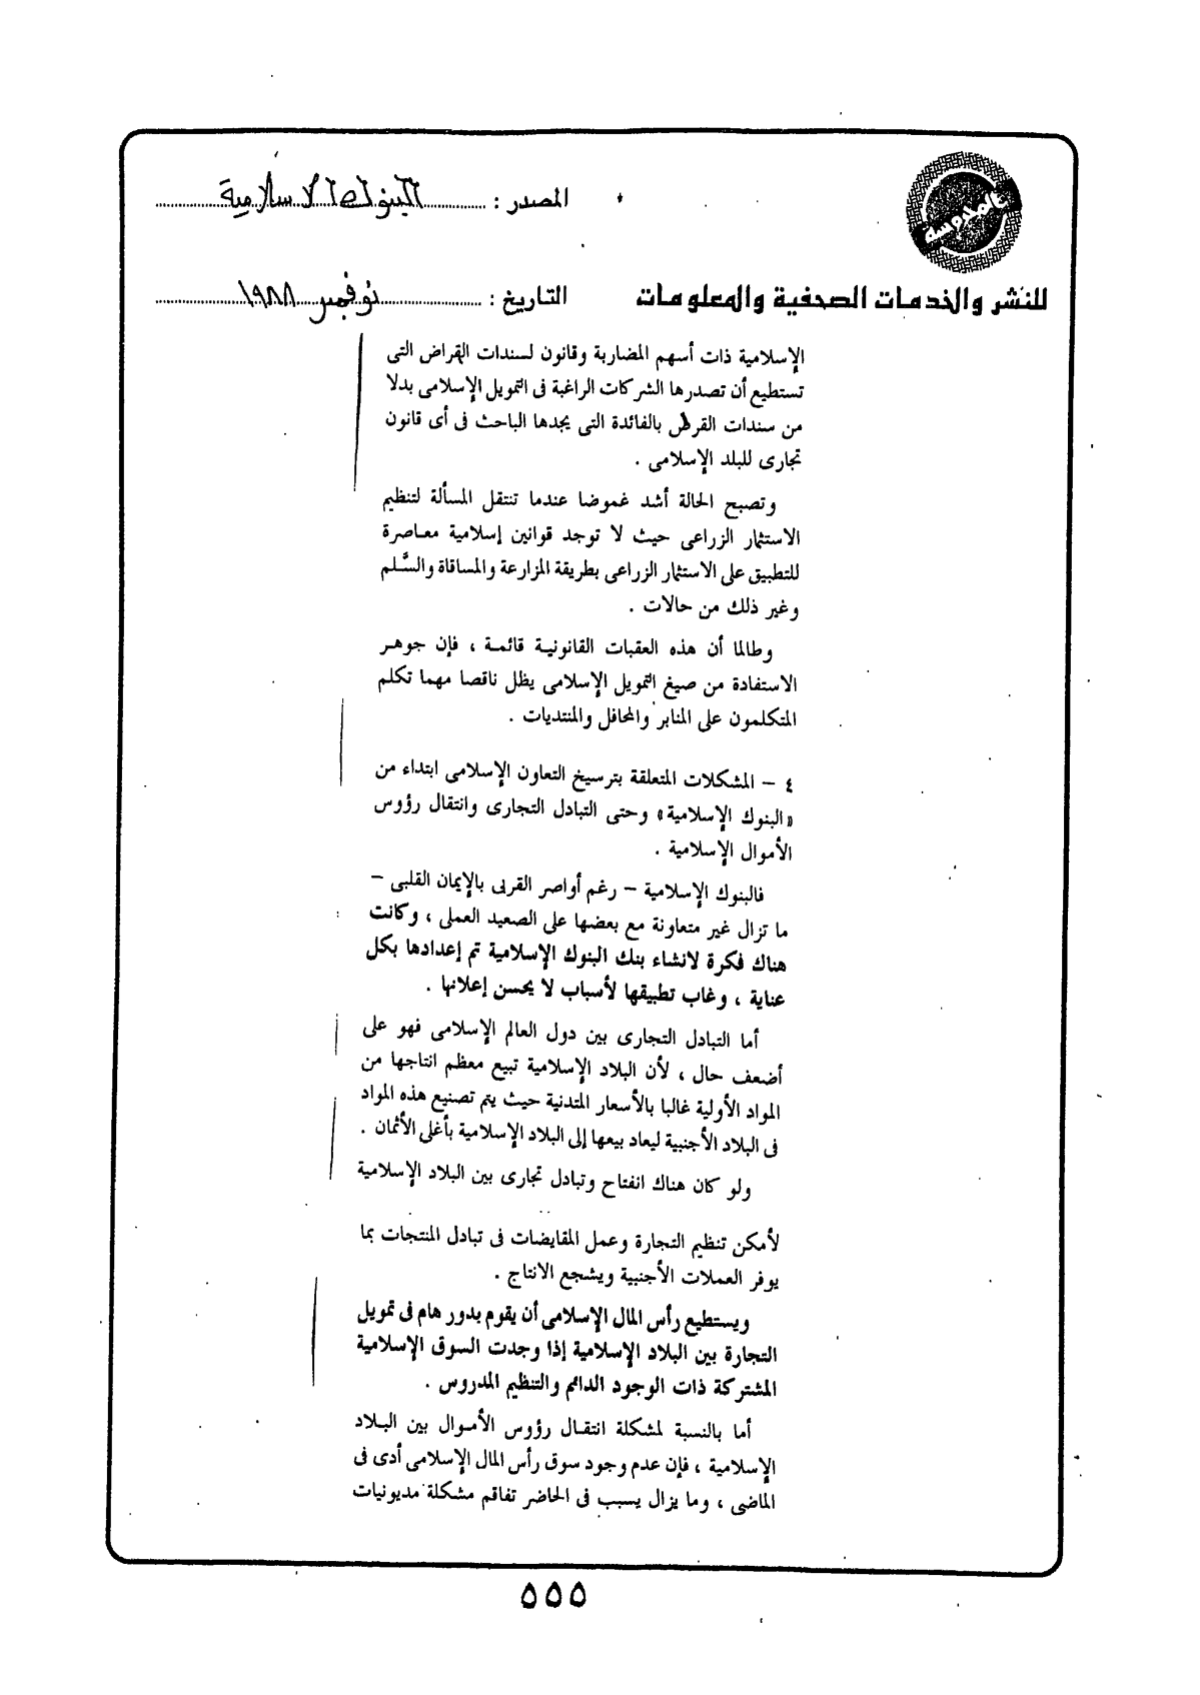 المصدر : البنوك الاسلامية
للنشر والخدمات الصحفية والمعلومات
التاريخ : نوفمبر ١٩٨٨
الإسلامية ذات أسهم المضاربة وقانون لسندات القراض التى
تستطيع أن تصدرها الشركات الراغبة فى التمويل الإسلامى بدلا
من سندات القرض بالفائدة التى يجدها الباحث فى أى قانون
تجارى للبلد الإسلامى .
وتصبح الحالة أشد غموضا عندما تنتقل المسألة لتنظيم
الاستثمار الزراعى حيث لا توجد قوانين إسلامية معاصرة
للتطبيق على الاستثمار الزراعى بطريقة المزارعة والمساقاة والسَّلم
وغير ذلك من حالات .
وطالما أن هذه العقبات القانونية قائمة ، فإن جوهر
الاستفادة من صيغ التمويل الإسلامى يظل ناقصا مهما تكلم
المتكلمون على المنابر والمحافل والمنتديات .
٤ – المشكلات المتعلقة بترسيخ التعاون الإسلامى ابتداء من
«البنوك الإسلامية» وحتى التبادل التجارى وانتقال رؤوس
الأموال الإسلامية .
فالبنوك الإسلامية – رغم أواصر القربى بالإيمان القلبى –
ما تزال غير متعاونة مع بعضها على الصعيد العملى ، وكانت
هناك فكرة لانشاء بنك البنوك الإسلامية تم إعدادها بكل
عناية ، وغاب تطبيقها لأسباب لا يحسن إعلانها .
أما التبادل التجارى بين دول العالم الإسلامى فهو على
أضعف حال ، لأن البلاد الإسلامية تبيع معظم انتاجها من
المواد الأولية غالبا بالأسعار المتدنية حيث يتم تصنيع هذه المواد
فى البلاد الأجنبية ليعاد بيعها إلى البلاد الإسلامية بأغلى الأثمان .
ولو كان هناك انفتاح وتبادل تجارى بين البلاد الإسلامية
لأمكن تنظيم التجارة وعمل المقايضات فى تبادل المنتجات بما
يوفر العملات الأجنبية ويشجع الانتاج .
ويستطيع رأس المال الإسلامى أن يقوم بدور هام فى تمويل
التجارة بين البلاد الإسلامية إذا وجدت السوق الإسلامية
المشتركة ذات الوجود الدائم والتنظيم المدروس .
أما بالنسبة لمشكلة انتقال رؤوس الأموال بين البلاد
الإسلامية ، فإن عدم وجود سوق رأس المال الإسلامى أدى فى
الماضى ، وما يزال يسبب فى الحاضر تفاقم مشكلة مديونيات
٥٥٥